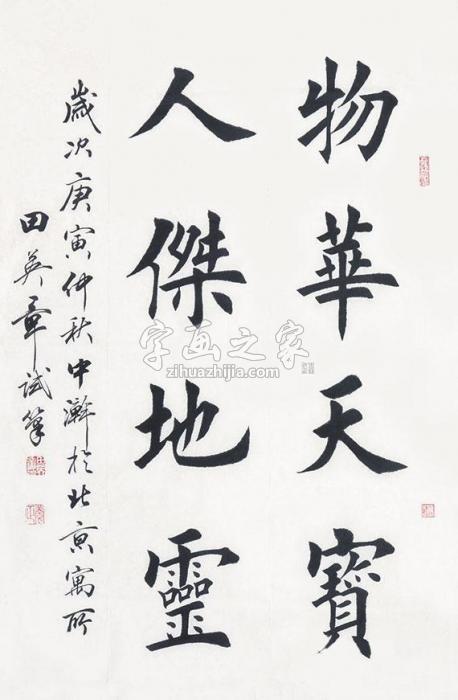 物華天寶
人傑地靈
歲次庚寅仲秋中澣於北京寓所
田英章試筆
字画之家
zihuazhijia.com